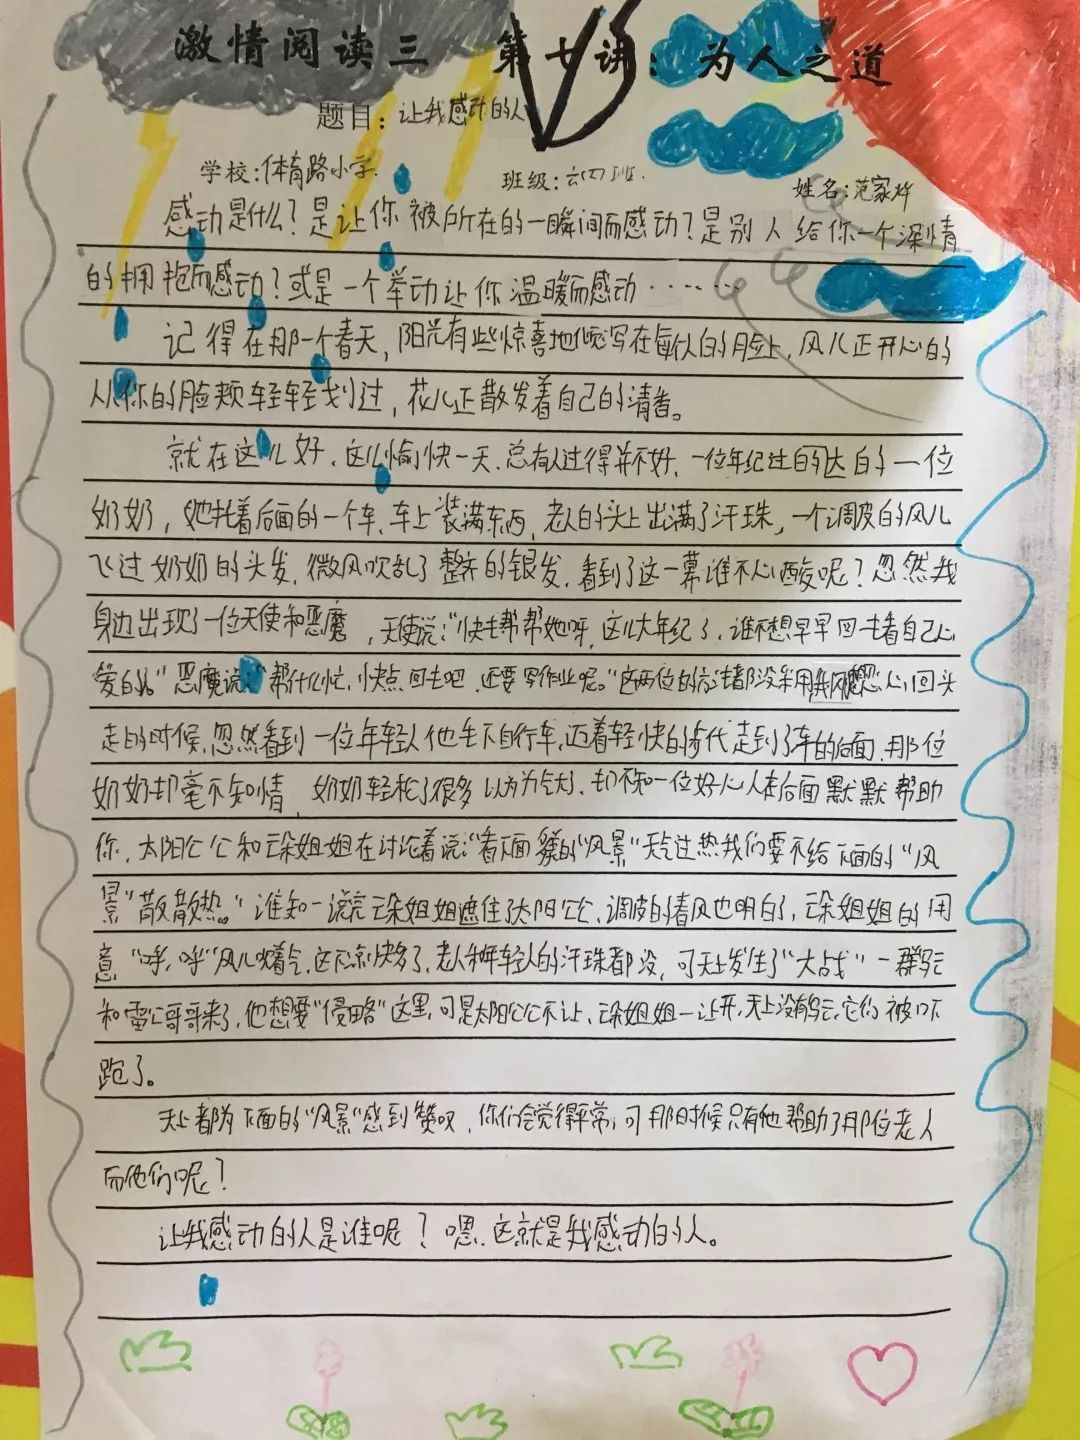 激情阅读三 第七讲：为人之道
题目：让我感动的人
学校：体育路小学
班级：六四班
姓名：范家烨
感动是什么？是让你被所在的一瞬间而感动？是别人给你一个深情
的拥抱而感动？或是一个举动让你温暖而感动……
记得在那一个春天，阳光有些惊喜地倾泻在每个人的脸上，风儿正开心的
从你的脸颊轻轻划过，花儿正散发着自己的清香。
就在这么好、这么愉快一天、总有人过得并不好、一位年纪过的一位
奶奶，她托着后面的一个车、车上装满东西，老人的头上出满了汗珠，一个调皮的风儿
飞过奶奶的头发，微风吹乱了整齐的银发，看到了这一幕谁不心酸呢？忽然我
身边出现了一位天使和恶魔，天使说：“快去帮帮她呀，这么大年纪了，谁不想早早回去看自己心
爱的。”恶魔说：“帮什么忙，快点回去吧，还要写作业呢。”这两位的都没采用心回头
走的时候，忽然看到一位年轻人他丢下自行车，迈着轻快的步代走到了车的后面，那位
奶奶却毫不知情，奶奶轻松了很多以为力气大了、却不知一位好心人在后面默默帮助
你，太阳公公和云朵姐姐在讨论着说：“看下面的“风景”天气过热我们要不给下面的“风
景”散散热。”谁知一说完云朵姐姐遮住了太阳公公、调皮的春风也明白了，云朵姐姐的用
意“呼，呼”风儿吹着气，这下凉快多了，老人和年轻人的汗珠都没，可天上发生了“大战”一群乌云
和雷公哥哥来了，他想要“侵略”这里，可是太阳公公不让、云朵姐姐一让开，天上没有乌云，它们被吓
跑了。
天上都为下面的“风景”感到赞叹，你们会觉得平常，可那时候只有他帮助了那位老人
而他们呢？
让我感动的人是谁呢？嗯、这就是我感动的人。